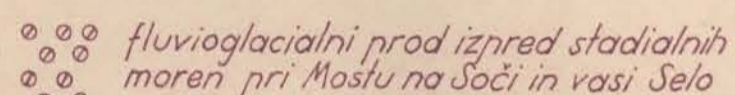 fluvioglacialni prod izpred stadialnih
moren pri Mostu na Soči in vasi Selo